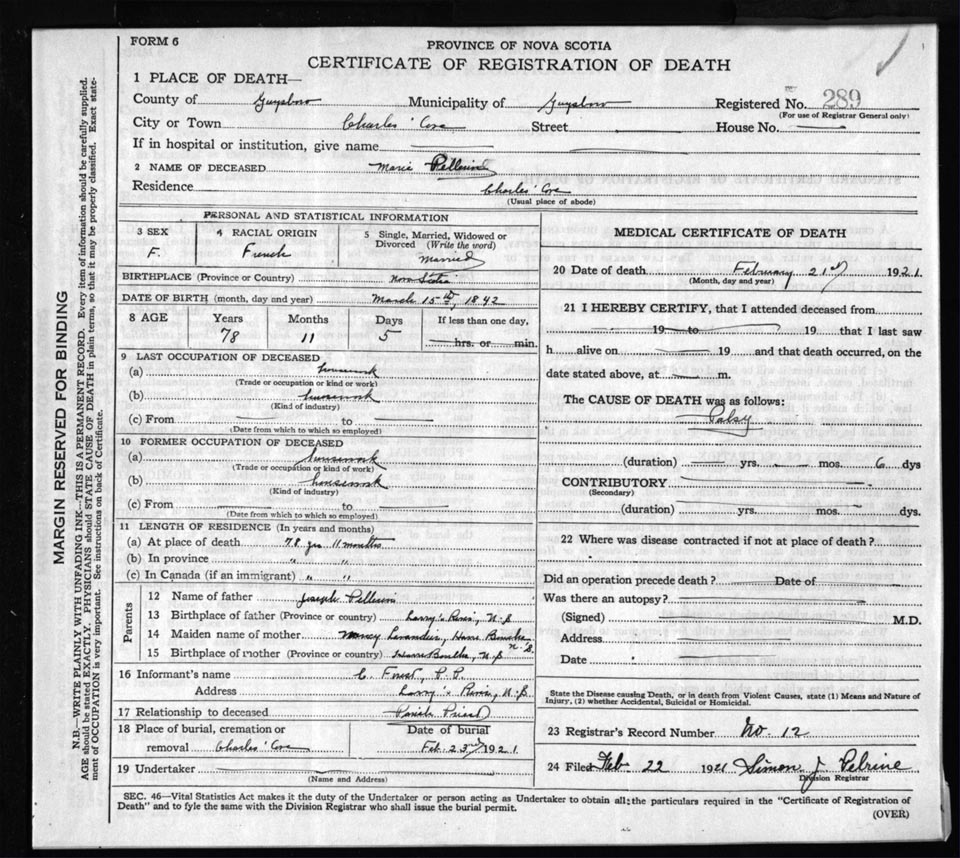 FORM 6
PROVINCE OF NOVA SCOTIA
CERTIFICATE OF REGISTRATION OF DEATH
1 PLACE OF DEATH—
County of Guysboro Municipality of Guysboro Registered No. 289
(For use of Registrar General only)
City or Town Charles' Cove Street House No.
If in hospital or institution, give name
2 NAME OF DECEASED Marie Pellerin
Residence Charles' Cove
(Usual place of abode)
PERSONAL AND STATISTICAL INFORMATION
3 SEX F.
4 RACIAL ORIGIN French
5 Single, Married, Widowed or Divorced (Write the word) Married
BIRTHPLACE (Province or Country) Nova Scotia
DATE OF BIRTH (month, day and year) March 15th, 1842
8 AGE Years Months Days If less than one day,
78 11 5 hrs. or min.
9 LAST OCCUPATION OF DECEASED
(a) housework
(Trade or occupation or kind or work)
(b) housework
(Kind of industry)
(c) From to
(Date from which to which so employed)
10 FORMER OCCUPATION OF DECEASED
(a) housework
(Trade or occupation or kind of work)
(b) housework
(Kind of industry)
(c) From to
(Date from which to which so employed)
11 LENGTH OF RESIDENCE (In years and months)
(a) At place of death 78 yrs 11 months
(b) In province " "
(c) In Canada (if an immigrant) " "
Parents
12 Name of father Joseph Pellerin
13 Birthplace of father (Province or country) Larry's River, N.S
14 Maiden name of mother Nancy
15 Birthplace of mother (Province or country) N.S
16 Informant's name C. Forest, P.P.
Address Larry's River, N.S.
17 Relationship to deceased Parish Priest
18 Place of burial, cremation or Date of burial
removal Charles' Cove Feb. 23rd 1921
19 Undertaker
(Name and Address)
MEDICAL CERTIFICATE OF DEATH
20 Date of death February 21st 1921
(Month, day and year)
21 I HEREBY CERTIFY, that I attended deceased from
19 to 19 that I last saw
h alive on 19 and that death occurred, on the
date stated above, at m.
The CAUSE OF DEATH was as follows:
Palsy
(duration) yrs. mos. 6 dys
CONTRIBUTORY
(Secondary)
(duration) yrs. mos. dys.
22 Where was disease contracted if not at place of death?
Did an operation precede death? Date of
Was there an autopsy?
(Signed) M.D.
Address
Date
State the Disease causing Death, or in death from Violent Causes, state (1) Means and Nature of
Injury, (2) whether Accidental, Suicidal or Homicidal.
23 Registrar's Record Number No. 12
24 Filed Feb 22 1921 Simon J Pelrine
Division Registrar
SEC. 46—Vital Statistics Act makes it the duty of the Undertaker or person acting as Undertaker to obtain all the particulars required in the "Certificate of Registration of
Death" and to fyle the same with the Division Registrar who shall issue the burial permit.
(OVER)
MARGIN RESERVED FOR BINDING
N.B.—WRITE PLAINLY WITH UNFADING INK—THIS IS A PERMANENT RECORD. Every item of information should be carefully supplied.
AGE should be stated EXACTLY. PHYSICIANS should STATE CAUSE OF DEATH in plain terms, so that it may be properly classified. Exact state-
ment of OCCUPATION is very important. See instructions on back of Certificate.